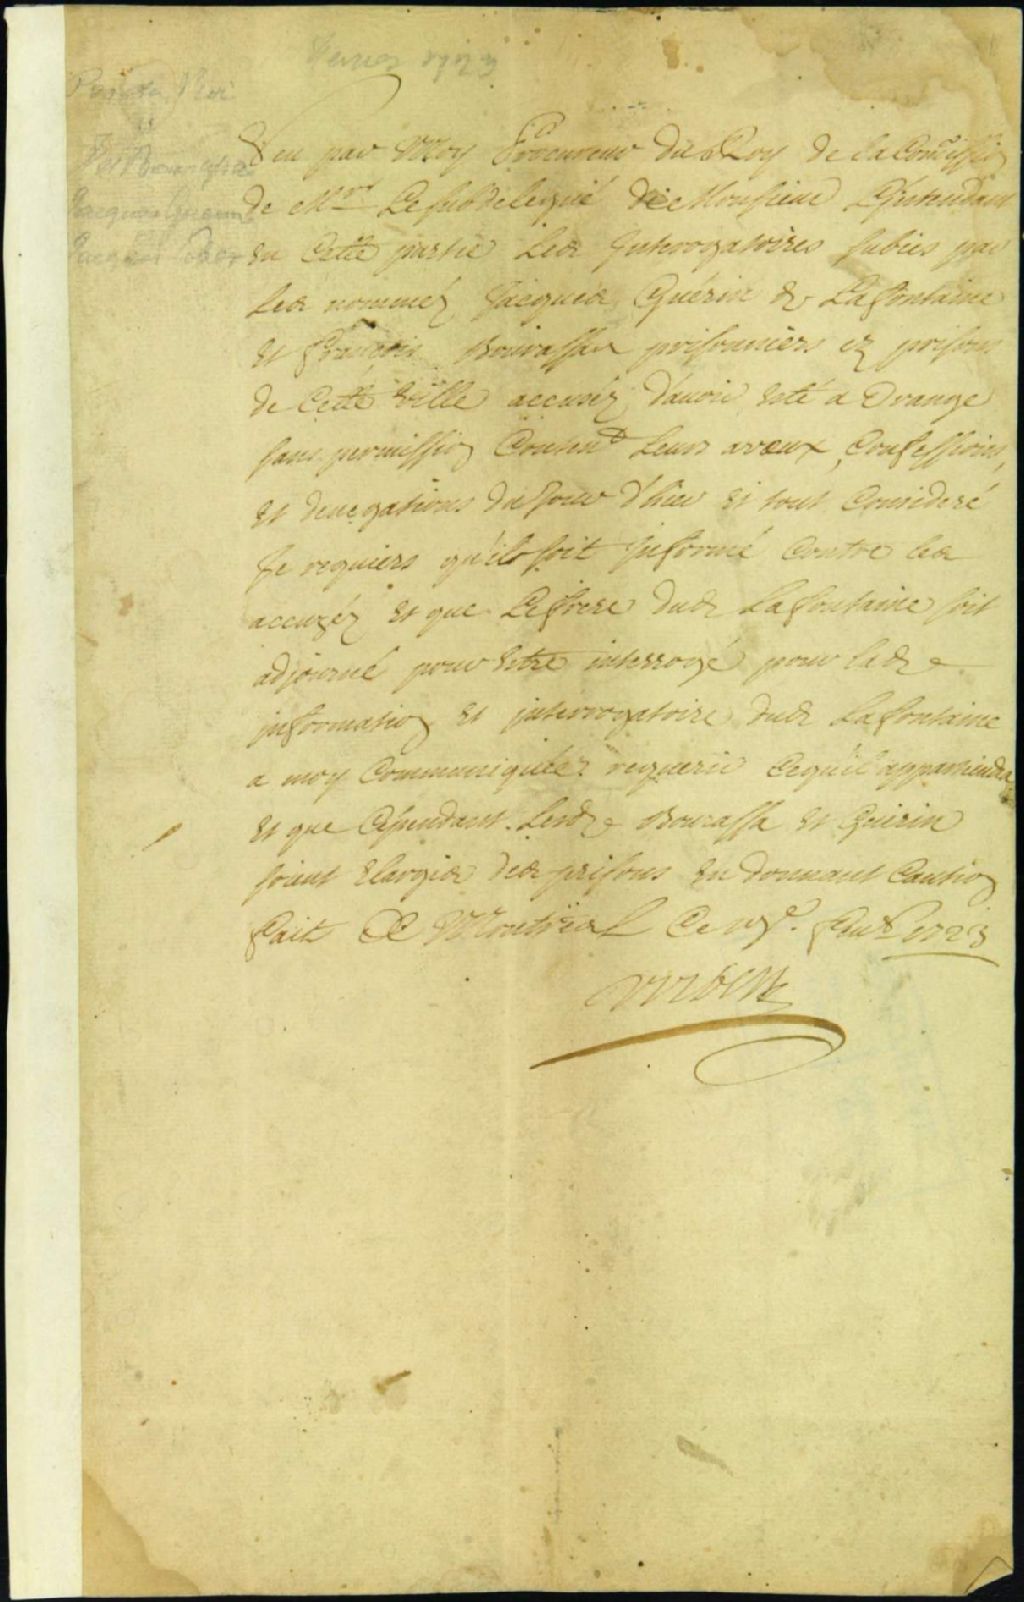 Fevrier 1723
Proc. du Roi
vs
Frs Bourassa
Jacques Guerin
Veu par Moy Procureur du Roy de la Commissio͠n
de Mr. Le subdelegué de Monsieur L'Intendant
en Cette partie Les Interrogatoires subies par
Les nommez Jacques Guérin & La fontaine
et François Bourassa prisonniers ez prisons
de Cette Ville accusez d'auoir Esté a Orange
sans permission Conten.t Leurs aveux, Confessions,
et denegations du Jour d'hier et tout Consideré
Je requiers qu'ils soit Informé Contre les
accuzéz et que Le frere dud. Lafontaine soit
adjourné pour Estre interrogé pour lad.e
information et interrogatoire dud. Lafontaine
a moy Communiquéez requerir Cequ'il appartiendra
et que Cependant Lesd. Bourassa et Guérin
soient Elargis des prisons En donnant Caution
fait A Montreal Ce fevr 1723